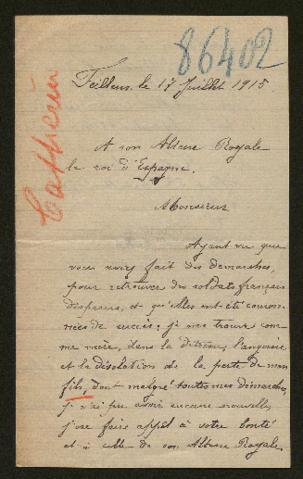 86402
Feillens, le 17 Juillet 1915.
Cattheein
A son Altesse Royale
le roi d'Espagne.
Monsieur
Ayant vu que
vous aviez fait des démarches,
pour retrouver des soldats français
disparus, et qu'elles ont été couron-
nées de succès; je me trouve com
me mère, dans la détresse, l'angoisse
et la désolation de la perte de mon
fils, dont malgré toutes mes démarches,
je n'ai pu avoir aucune nouvelle,
j'ose faire appel à votre bonté
et à celle de son Altesse Royale,